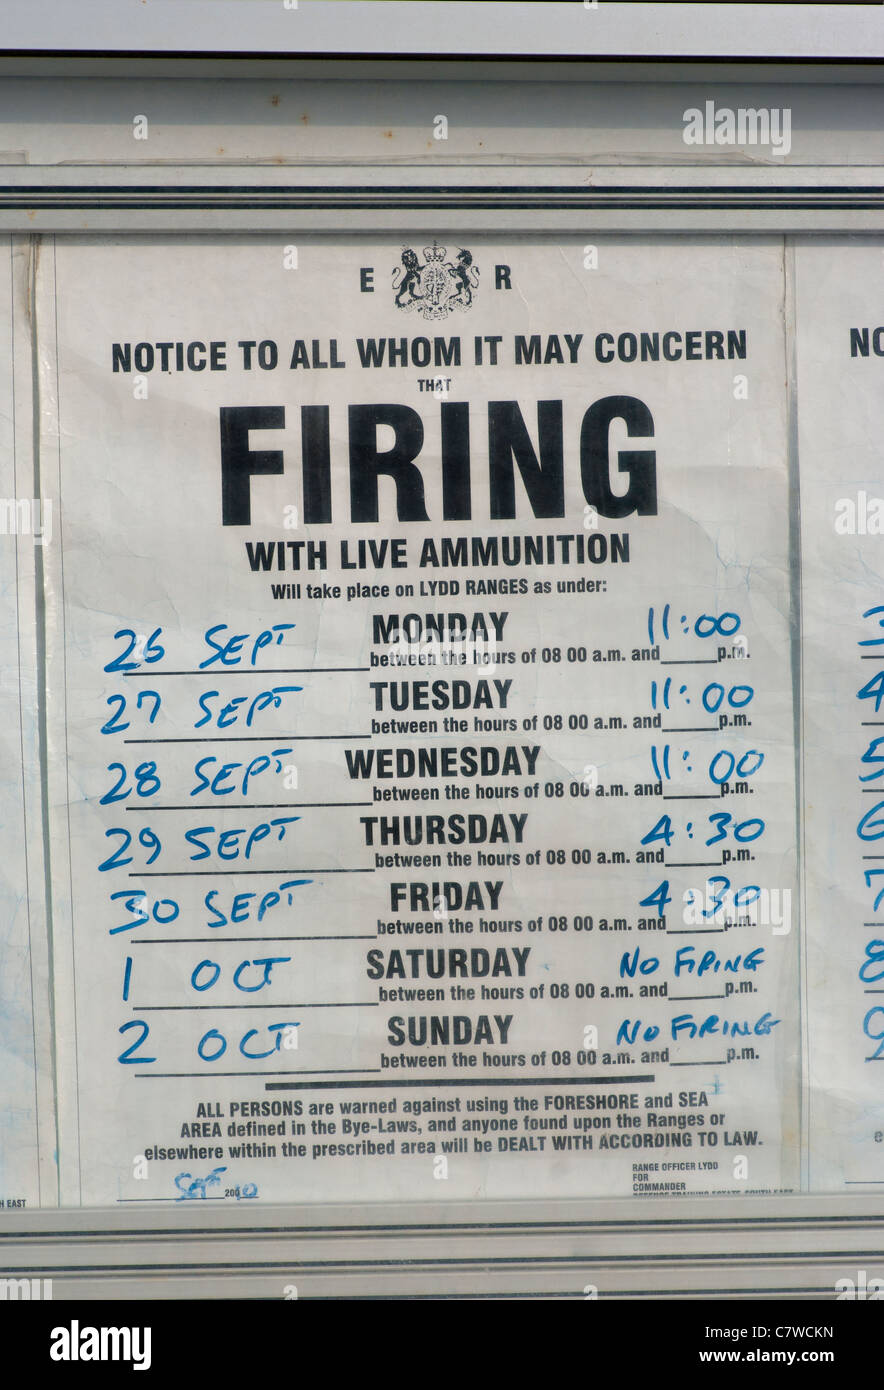 E R
NOTICE TO ALL WHOM IT MAY CONCERN
THAT
FIRING
WITH LIVE AMMUNITION
Will take place on LYDD RANGES as under:
26 SEPT MONDAY 11:00
between the hours of 08 00 a.m. and p.m.
27 SEPT TUESDAY 11:00
between the hours of 08 00 a.m. and p.m.
28 SEPT WEDNESDAY 11:00
between the hours of 08 00 a.m. and p.m.
29 SEPT THURSDAY 4:30
between the hours of 08 00 a.m. and p.m.
30 SEPT FRIDAY 4:30
between the hours of 08 00 a.m. and p.m.
1 OCT SATURDAY NO FIRING
between the hours of 08 00 a.m. and p.m.
2 OCT SUNDAY NO FIRING
between the hours of 08 00 a.m. and p.m.
ALL PERSONS are warned against using the FORESHORE and SEA
AREA defined in the Bye-Laws, and anyone found upon the Ranges or
elsewhere within the prescribed area will be DEALT WITH ACCORDING TO LAW.
Sept
RANGE OFFICER LYDD
FOR
COMMANDER
DEFENCE TRAINING ESTATE SOUTH EAST
H EAST
NO
4
5
6
7
8
alamy
a
alamy stock photo
C7WCKN
www.alamy.com